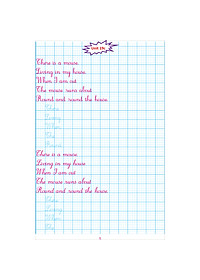 There is a mouse
Living in my house.
When I am out
The mouse runs about
Round and round the house.
There
Living
When
The
There is a mouse.
Living in my house
When I am out
The mouse runs about
Round and round the house.
There
Living
When
The